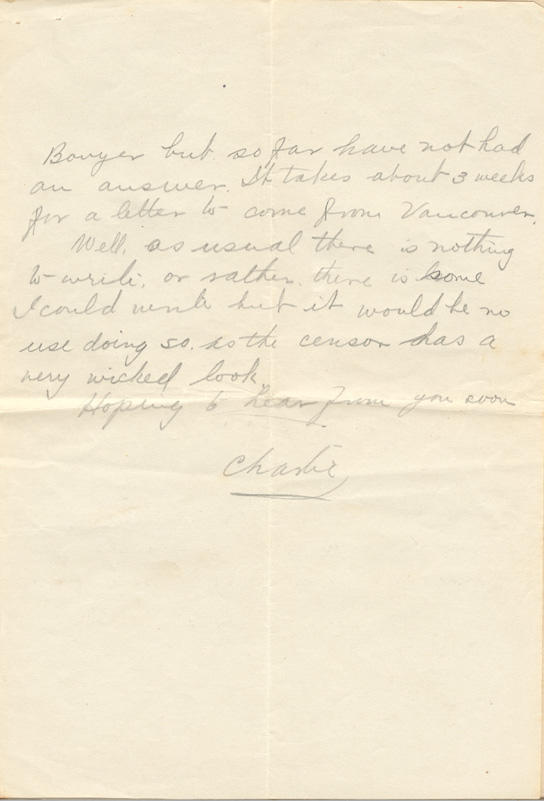 Bouyer but so far have not had
an answer. It takes about 3 weeks
for a letter to come from Vancouver.
Well, as usual there is nothing
to write, or rather, there is some
I could write but it would be no
use doing so. as the censor has a
very wicked look.
Hoping to hear from you soon
Charlie